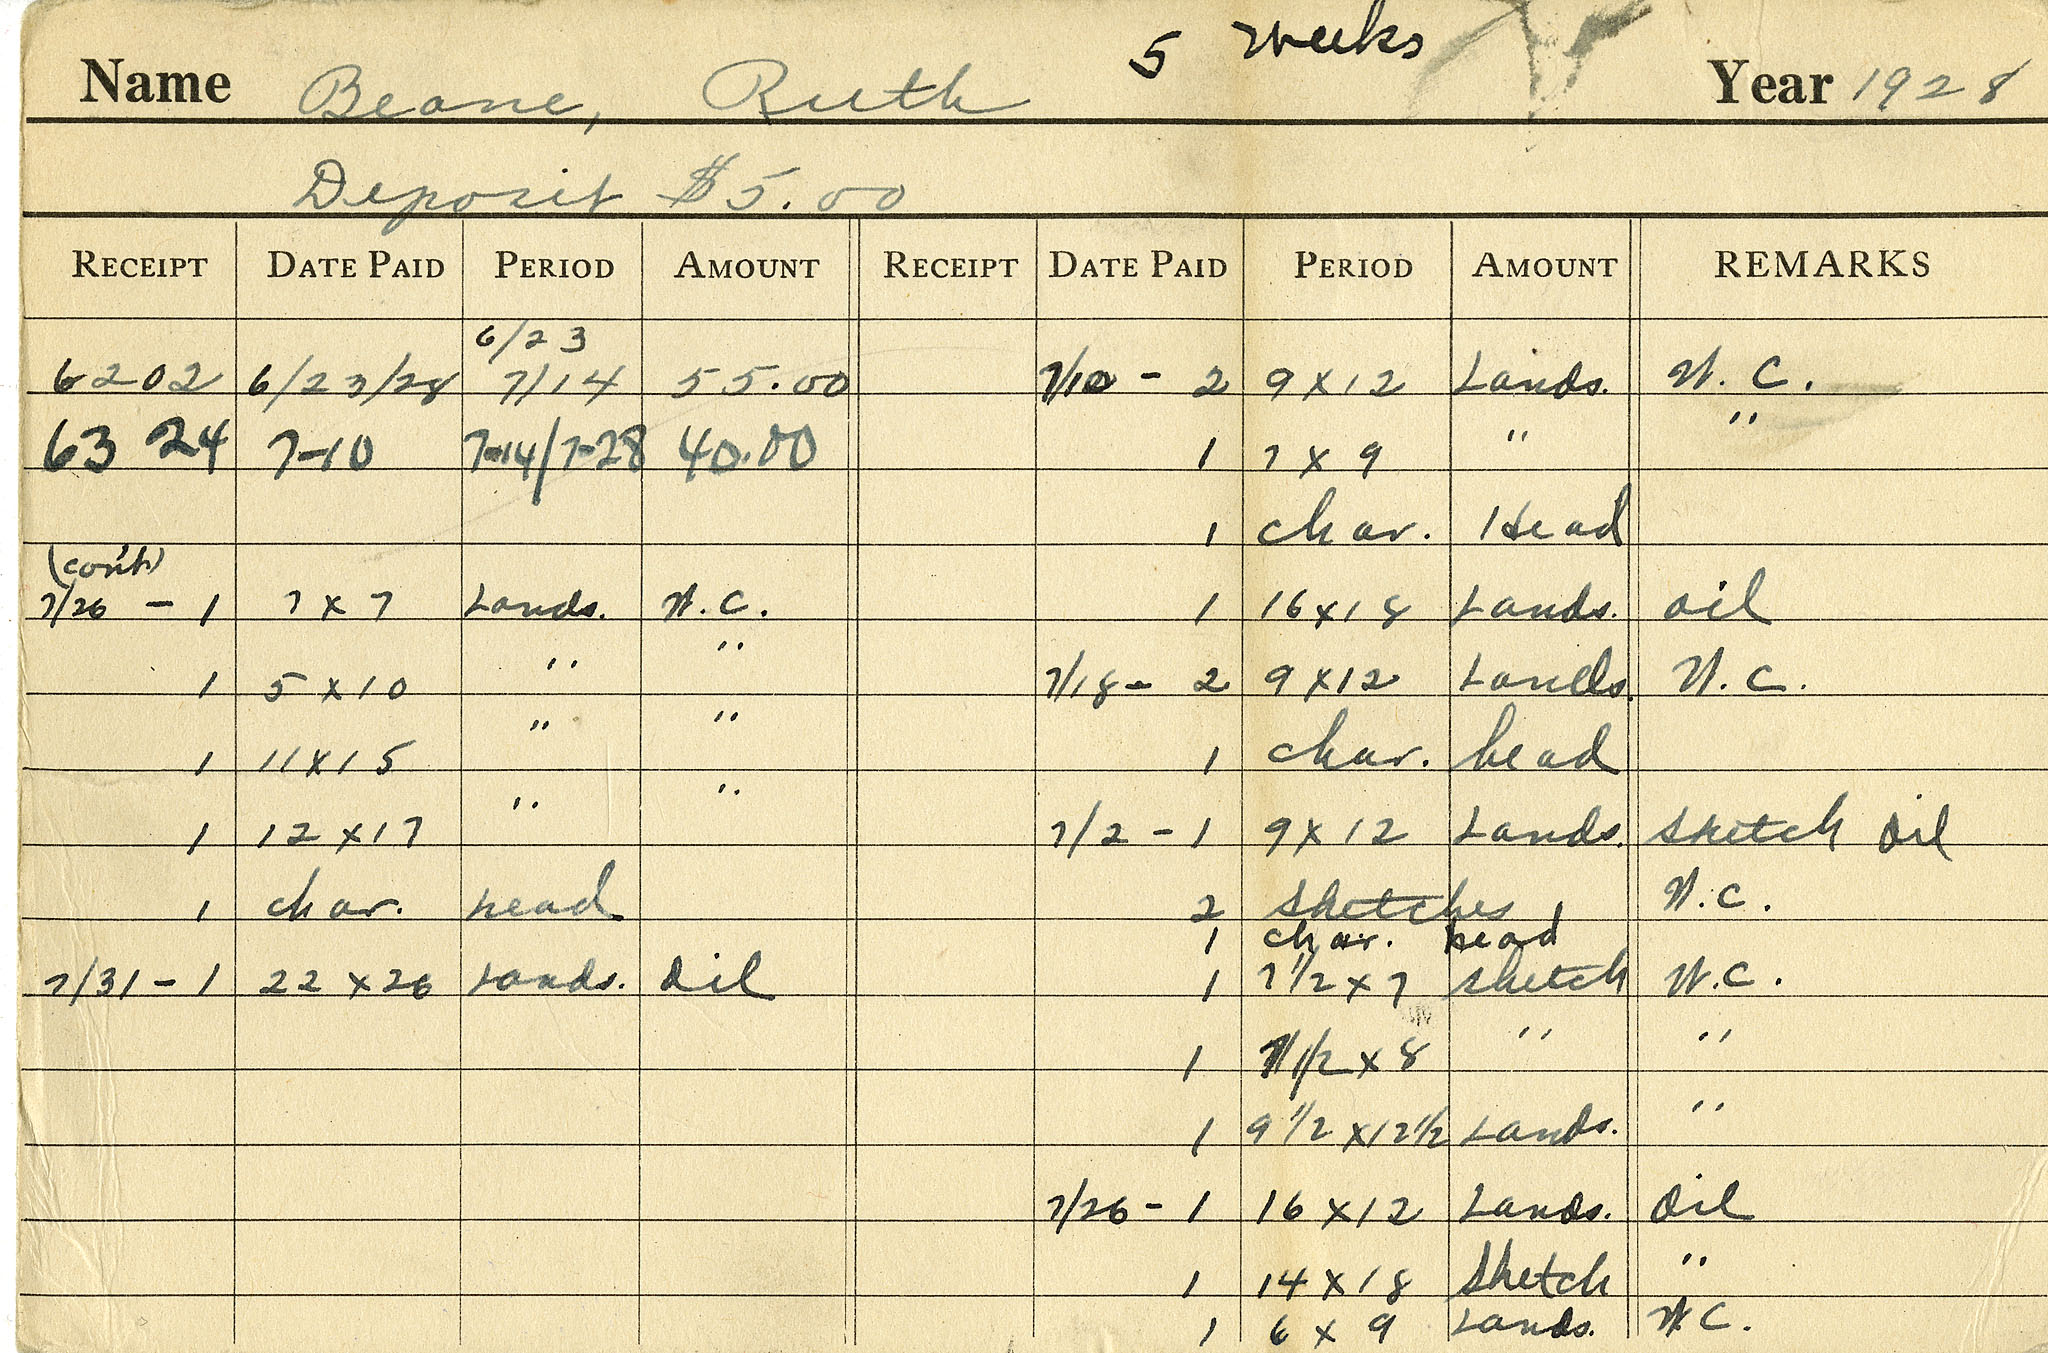 5 Weeks
Name Beane, Ruth Year 1928
Deposit $5.00
RECEIPT DATE PAID PERIOD AMOUNT RECEIPT DATE PAID PERIOD AMOUNT REMARKS
6/23
6202 6/23/28 7/14 55.00 7/10 - 2 9 x 12 Lands. W. C.
6324 7-10 7-14/7-28 40.00 1 7 x 9 " "
1 char. Head
(con't)
7/26 - 1 7 x 7 Lands. W. C. 1 16 x 18 Lands. oil
1 5 x 10 " " 7/18 - 2 9 x 12 Lands. W. C.
1 11 x 15 " " 1 char. head
1 12 x 17 " " 7/2 - 1 9 x 12 Lands. sketch oil
1 char. head 2 sketches W. C.
1 char. head
7/31 - 1 22 x 26 Lands. oil 1 7 1/2 x 7 sketch W. C.
1 7 1/2 x 8 " "
1 9 1/2 x 12 1/2 Lands. "
7/26 - 1 16 x 12 Lands. oil
1 14 x 18 sketch "
1 6 x 9 Lands. W. C.